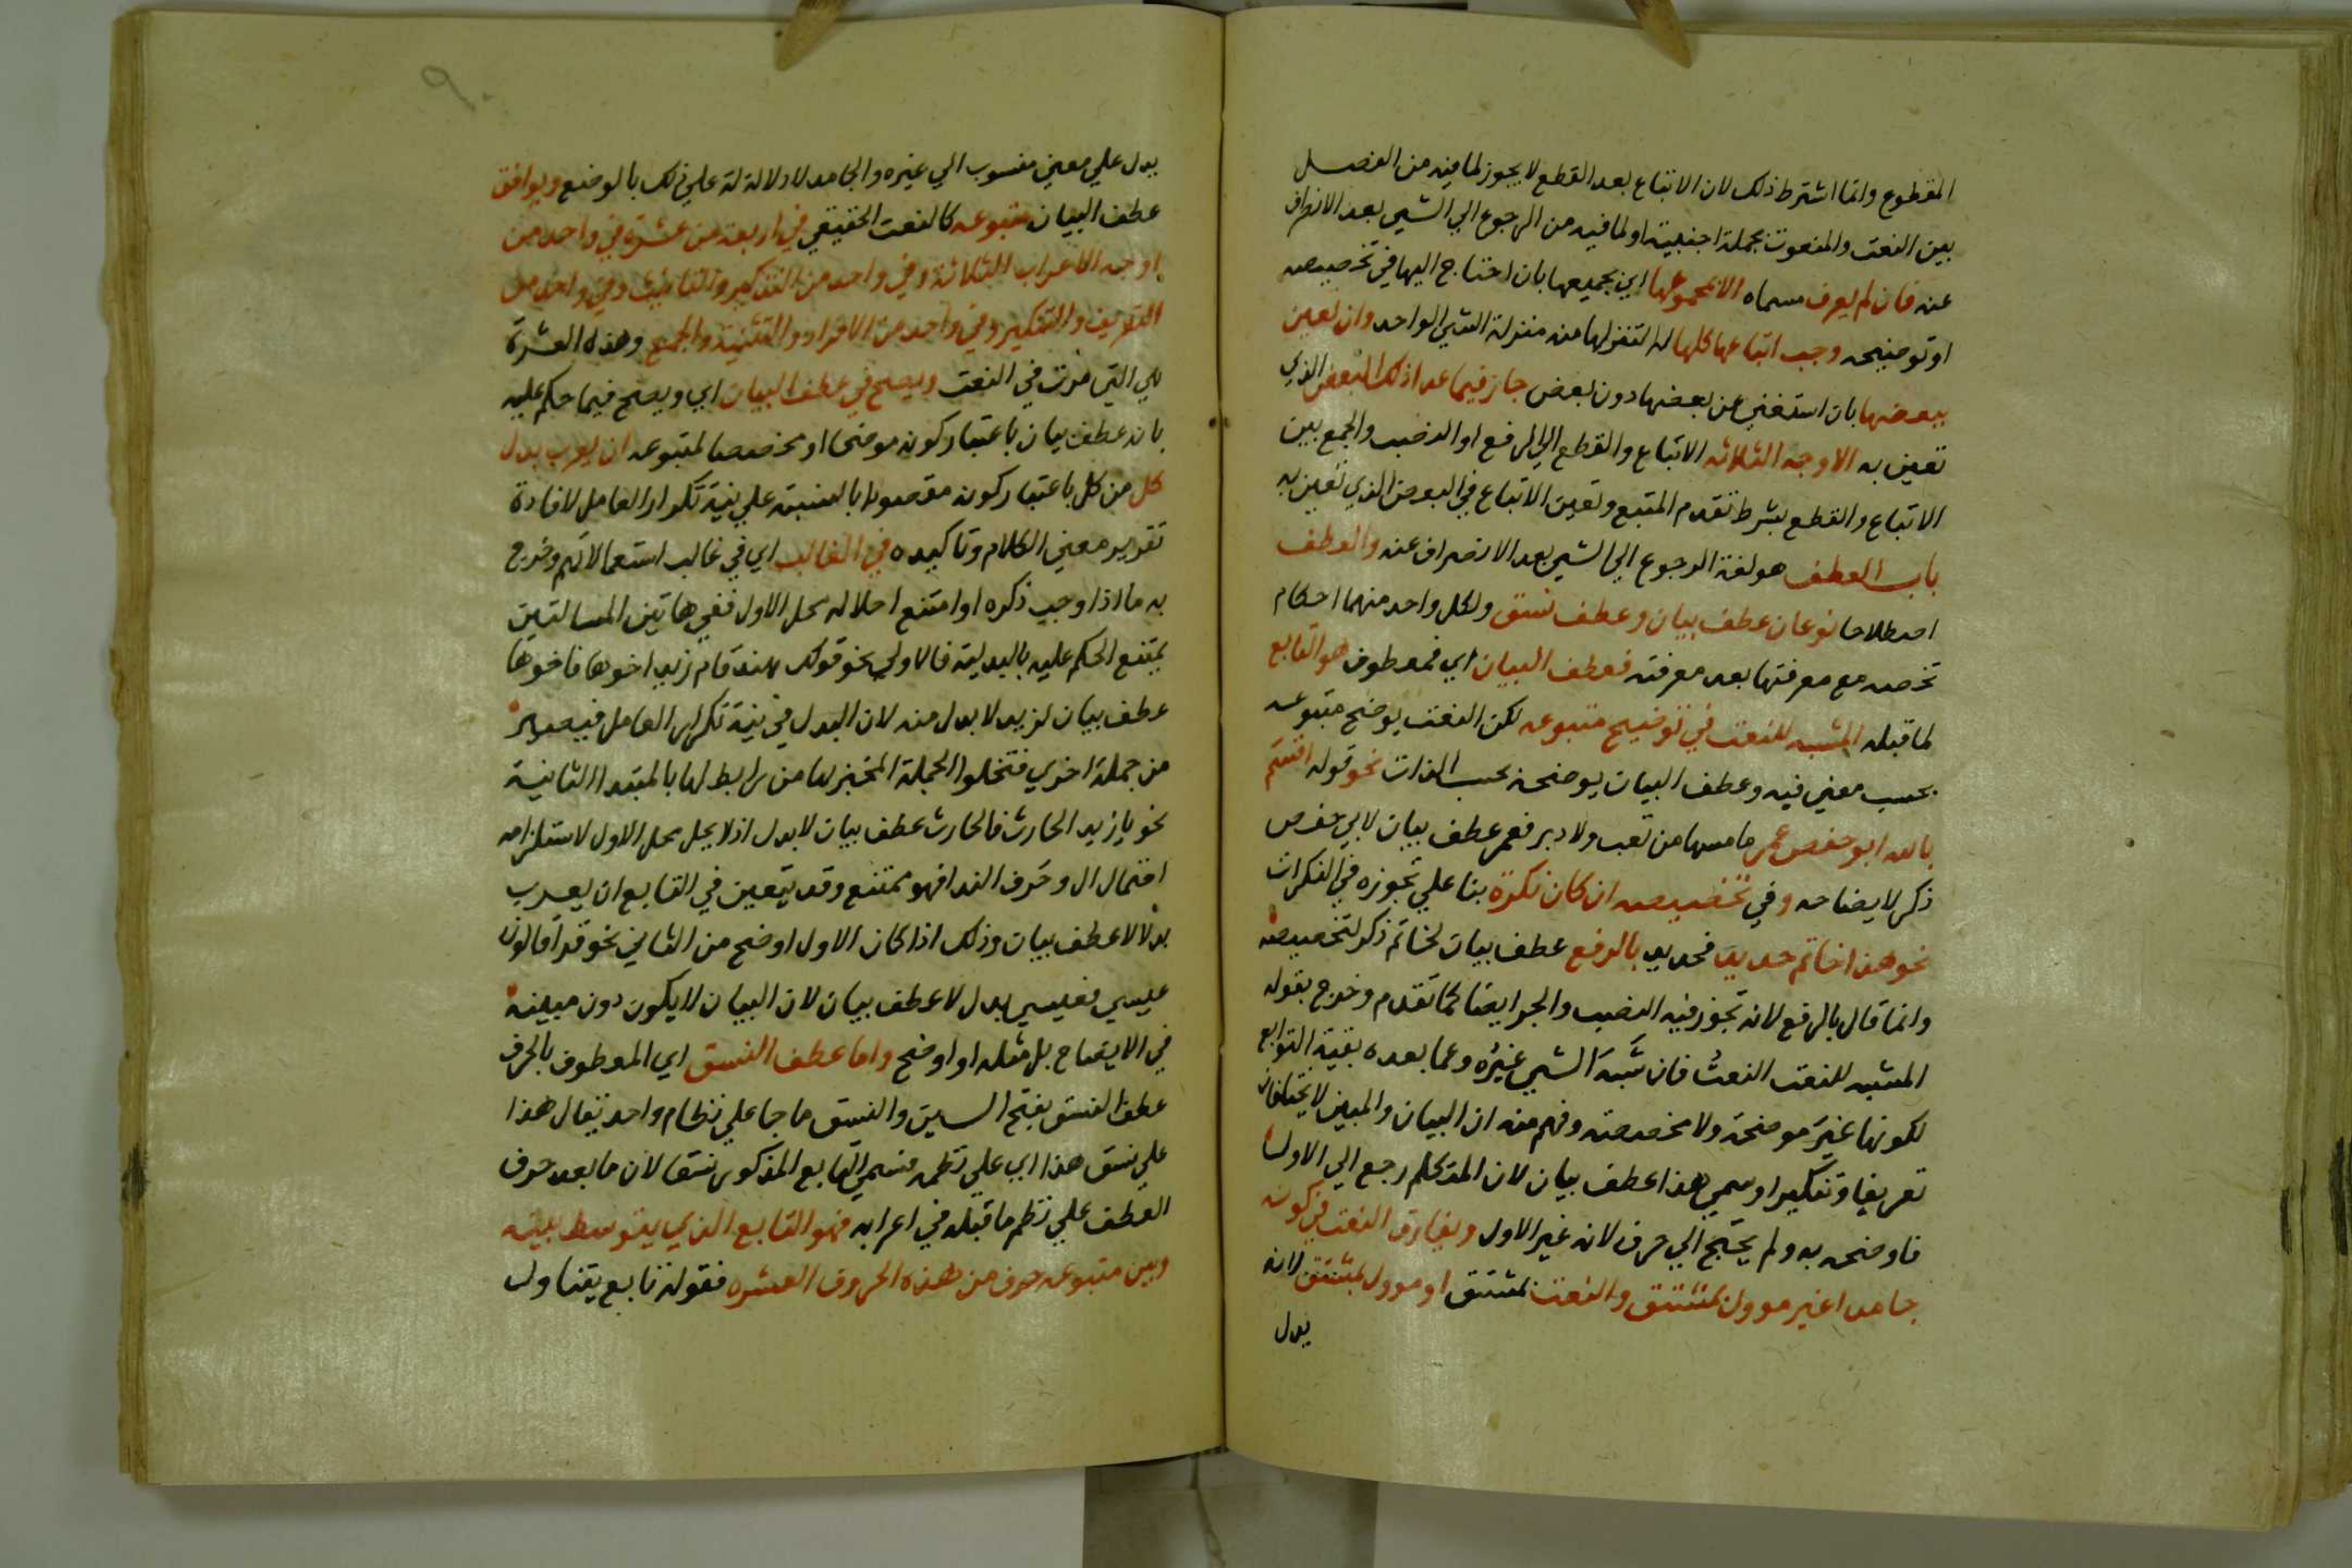 المقطوع وانما اشترط ذلك لان الاتباع بعد القطع لا يجوز لما فيه من الفصل
بين النعت والمنعوت بجملة اجنبية او لما فيه من الرجوع الي الشي بعد الانصراف
عنه فان لم يعرف مسماه الا بمجموعها اي بجميعها بان احتاج اليها في تخصيصه
او توضيحه وجب اتباعها كلها له لتنزلها منه منزلة الشي الواحد وان تعين
ببعضها بان استغني عن بعضها دون بعض جاز فيما عدا ذلك البعض الذي
تعين به الاوجه الثلاثه الاتباع والقطع الي الرفع او النصب والجمع بين
الاتباع والقطع بشرط تقدم المتبع وتعين الاتباع في البعض الذي تعين به
باب العطف هو لغة الرجوع الي الشي بعد الانصراف عنه والعطف
اصطلاحا نوعان عطف بيان وعطف نسق ولكل واحد منهما احكام
تخصه مع معرفتها بعد معرفته فعطف البيان اي فمعطوف هو التابع
لما قبله المشبه للنعت في توضيح متبوعه لكن النعت يوضح متبوعه
بحسب معني فيه وعطف البيان يوضحه بحسب الذات نحو قوله اقسم
بالله ابو حفص عمر ما مسها من نقب ولا دبر فعمر عطف بيان لابي حفص
ذكر لايضاحه وفي تخصيصه ان كان نكرة بنا علي تجوزه في النكرات
نحو هذا خاتم حديد فحديد بالرفع عطف بيان لخاتم ذكر لتخصيصه
وانما قال بالرفع لانه تجوز فيه النصب والجر ايضا كما تقدم وخرج بقوله
المشبه للنعت النعت فان شبه الشي غيره وعما بعده بقية التوابع
لكونها غير موضحة ولا مخصصة وفهم منه ان البيان والمبين لا يختلفان
تعريفا وتنكيرا وسمي هذا عطف بيان لان المتكلم رجع الي الاول
فاوضحه به ولم يحتج الي حرف لانه غير الاول ويفارق النعت في كونه
جامدا غير موول بمشتق والنعت بمشتق او موول بمشتق لانه
يدل
يدل علي معني منسوب الي غيره والجامد لا دلالة له علي ذلك بالوضع ويوافق
عطف البيان متبوعه كالنعت الحقيقي في اربعة من عشرة في واحد من
اوجه الاعراب الثلاثة وفي واحد من التذكير والتانيث وفي واحد من
التعريف والتنكير وفي واحد من الافراد والتثنية والجمع وهذه العشرة
هي التي مرت في النعت ويصح في عطف البيان اي ويصح فيما حكم عليه
بانه عطف بيان باعتبار كونه موضحا او مخصصا لمتبوعه ان يعرب بدل
كل من كل باعتبار كونه مقصودا بالنسبة علي نية تكرار العامل لافادة
تقرير معني الكلام وتاكيده في الغالب اي في غالب استعمالاتهم وخرج
به ما اذا وجب ذكره او امتنع احلاله محل الاول ففي هاتين المسالتين
يمتنع الحكم عليه بالبدلية فالاولي نحو قولك هند قام زيد اخوها فاخوها
عطف بيان لزيد لا بدل منه لان البدل في نية تكرار العامل فيصير
من جملة اخري فتخلوا الجملة المخبر بها من رابط لها بالمبتدا الثانية
نحو يا زيد الحارث فالحارث عطف بيان لا بدل اذ لا يحل محل الاول لاستلزامه
اجتماع ال وحرف الندا فهو ممتنع وقد يتعين في التابع ان يعرب
بدلا لا عطف بيان وذلك اذا كان الاول اوضح من الثاني نحو قرا قالون
عيسي فعيسي بدل لا عطف بيان لان البيان لا يكون دون مبينه
في الايضاح بل مثله او اوضح واما عطف النسق اي المعطوف بالحرف
عطف النسق بفتح السين والنسق ما جا علي نظام واحد يقال هذا
علي نسق هذا اي علي نظمه فسمي التابع المذكور نسقا لان ما بعد حرف
العطف علي نظم ما قبله في اعرابه فهو التابع الذي يتوسط بينه
وبين متبوعه حرف من هذه الحروف العشره فقوله تابع يتناول